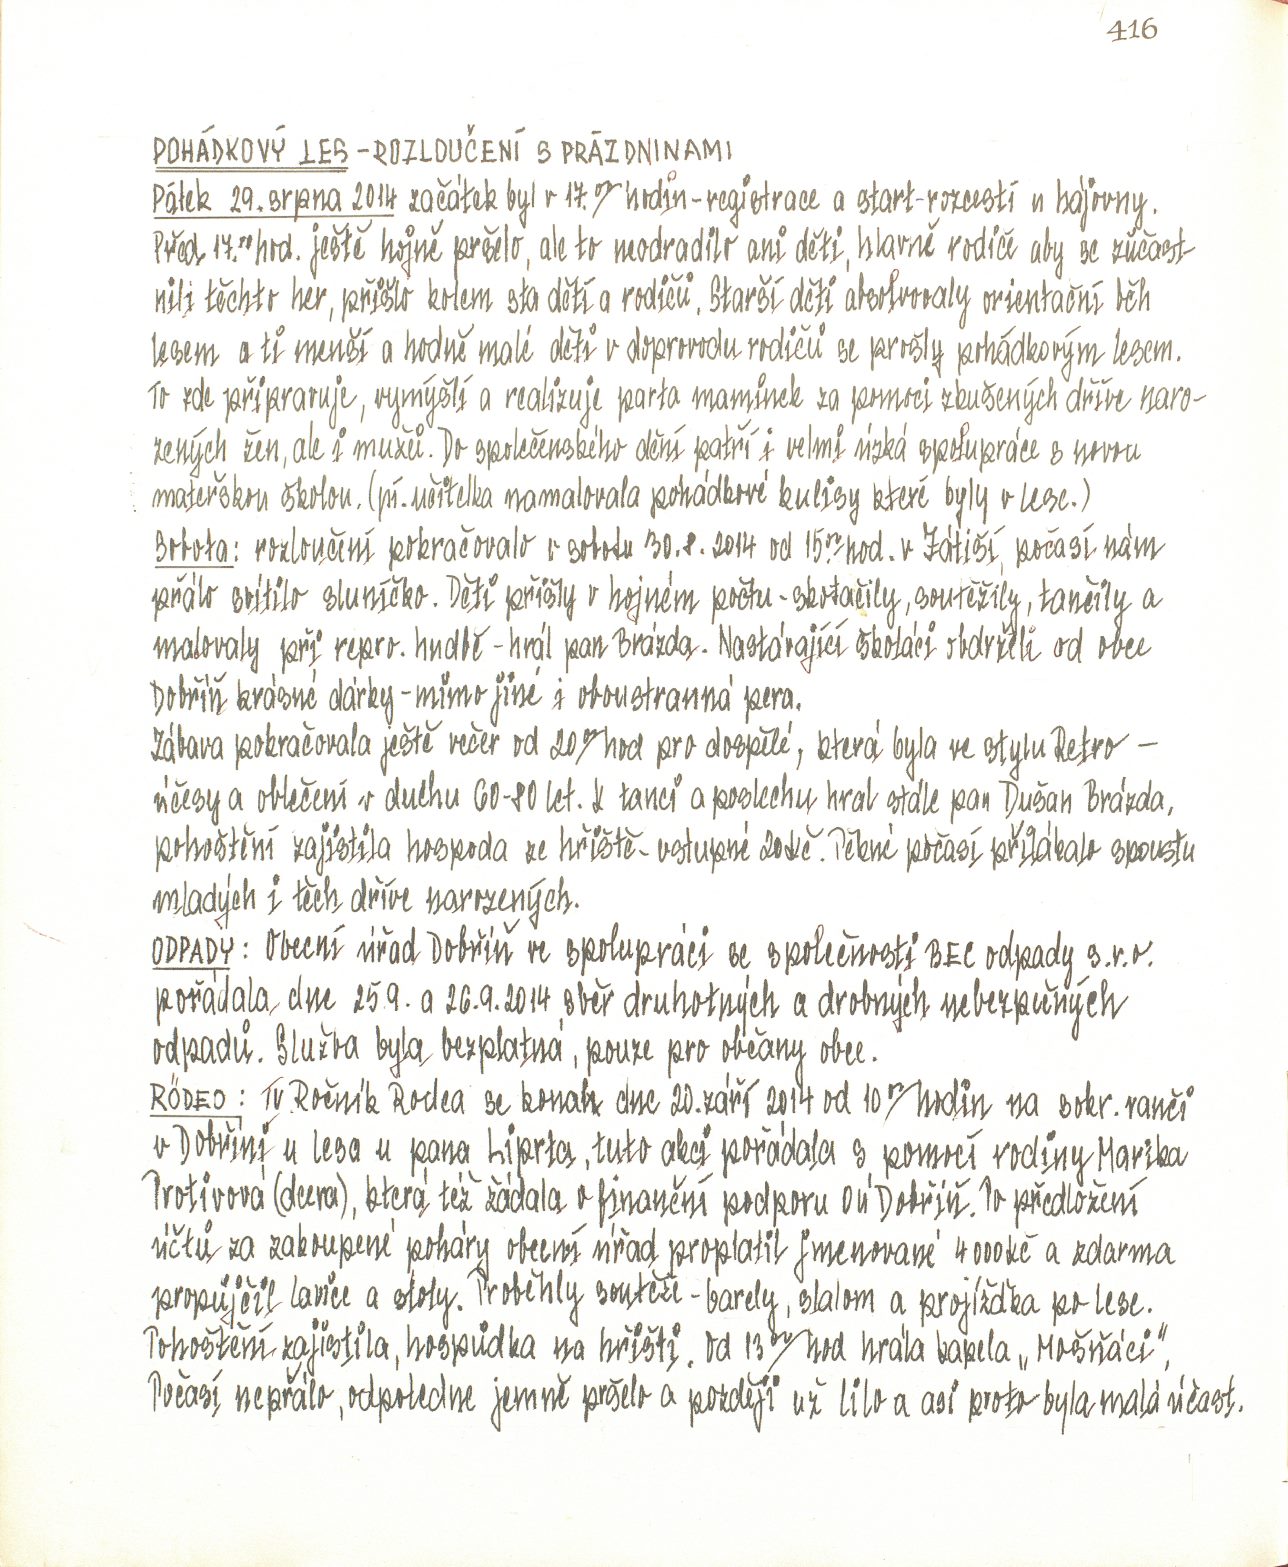 416
POHÁDKOVÝ LES - ROZLOUČENÍ S PRÁZDNINAMI
Pátek 29. srpna 2014 začátek byl v 17.00 hodin - registrace a start - rozcestí u hájovny.
Před 17.00 hod. ještě hojně pršelo, ale to neodradilo ani děti, hlavně rodiče aby se zúčast
nili těchto her, přišlo kolem sta dětí a rodičů. Starší děti absolvovaly orientační běh
lesem a ti menší a hodně malé děti v doprovodu rodičů se prošly pohádkovým lesem.
To zde připravuje, vymýšlí a realizuje parta maminek za pomoci zkušených dříve naro-
zených žen, ale i mužů. Do společenského dění patří i velmi úzká spolupráce s novou
mateřskou školou. (pí. učitelka namalovala pohádkové kulisy které byly v lese.)
Sobota: rozloučení pokračovalo v sobotu 30.8. 2014 od 15.00 hod. v Zátiší, počasí nám
přálo svítilo sluníčko. Děti přišly v hojném počtu - skotačily, soutěžily, tančily a
malovaly při repro. hudbě - hrál pan Brázda. Nastávající školáci obdrželi od obce
Dobříň krásné dárky - mimo jiné i oboustranná pera.
Zábava pokračovala ještě večer od 20.00 hod pro dospělé, která byla ve stylu Retro -
účesy a oblečení v duchu 60-80 let. K tanci a poslechu hrál stále pan Dušan Brázda,
pohoštění zajistila hospoda ze hřiště - vstupné 20 Kč. Pěkné počasí přilákalo spoustu
mladých i těch dříve narozených.
ODPADY: Obecní úřad Dobříň ve spolupráci se společností BEC odpady s.r.o.
pořádala dne 25.9. a 26.9.2014 sběr druhotných a drobných nebezpečných
odpadů. Služba byla bezplatná, pouze pro občany obce.
RÓDEO: IV. Ročník Rodea se konal dne 20. září 2014 od 10.00 hodin na sokr. ranči
v Dobříni u lesa u pana Liprta, tuto akci pořádala s pomocí rodiny Marika
Protivová (dcera), která též žádala o finanční podporu OÚ Dobříň. Po předložení
účtů za zakoupené poháry obecní úřad proplatil jmenované 4 000 Kč a zdarma
propůjčil lavice a stoly. Proběhly soutěže - barely, slalom a projížďka po lese.
Pohoštění zajistila, hospůdka na hřišti. Od 13.00 hod hrála kapela „Mošňáci",
Počasí nepřálo, odpoledne jemně pršelo a později už lilo a asi proto byla malá účast.